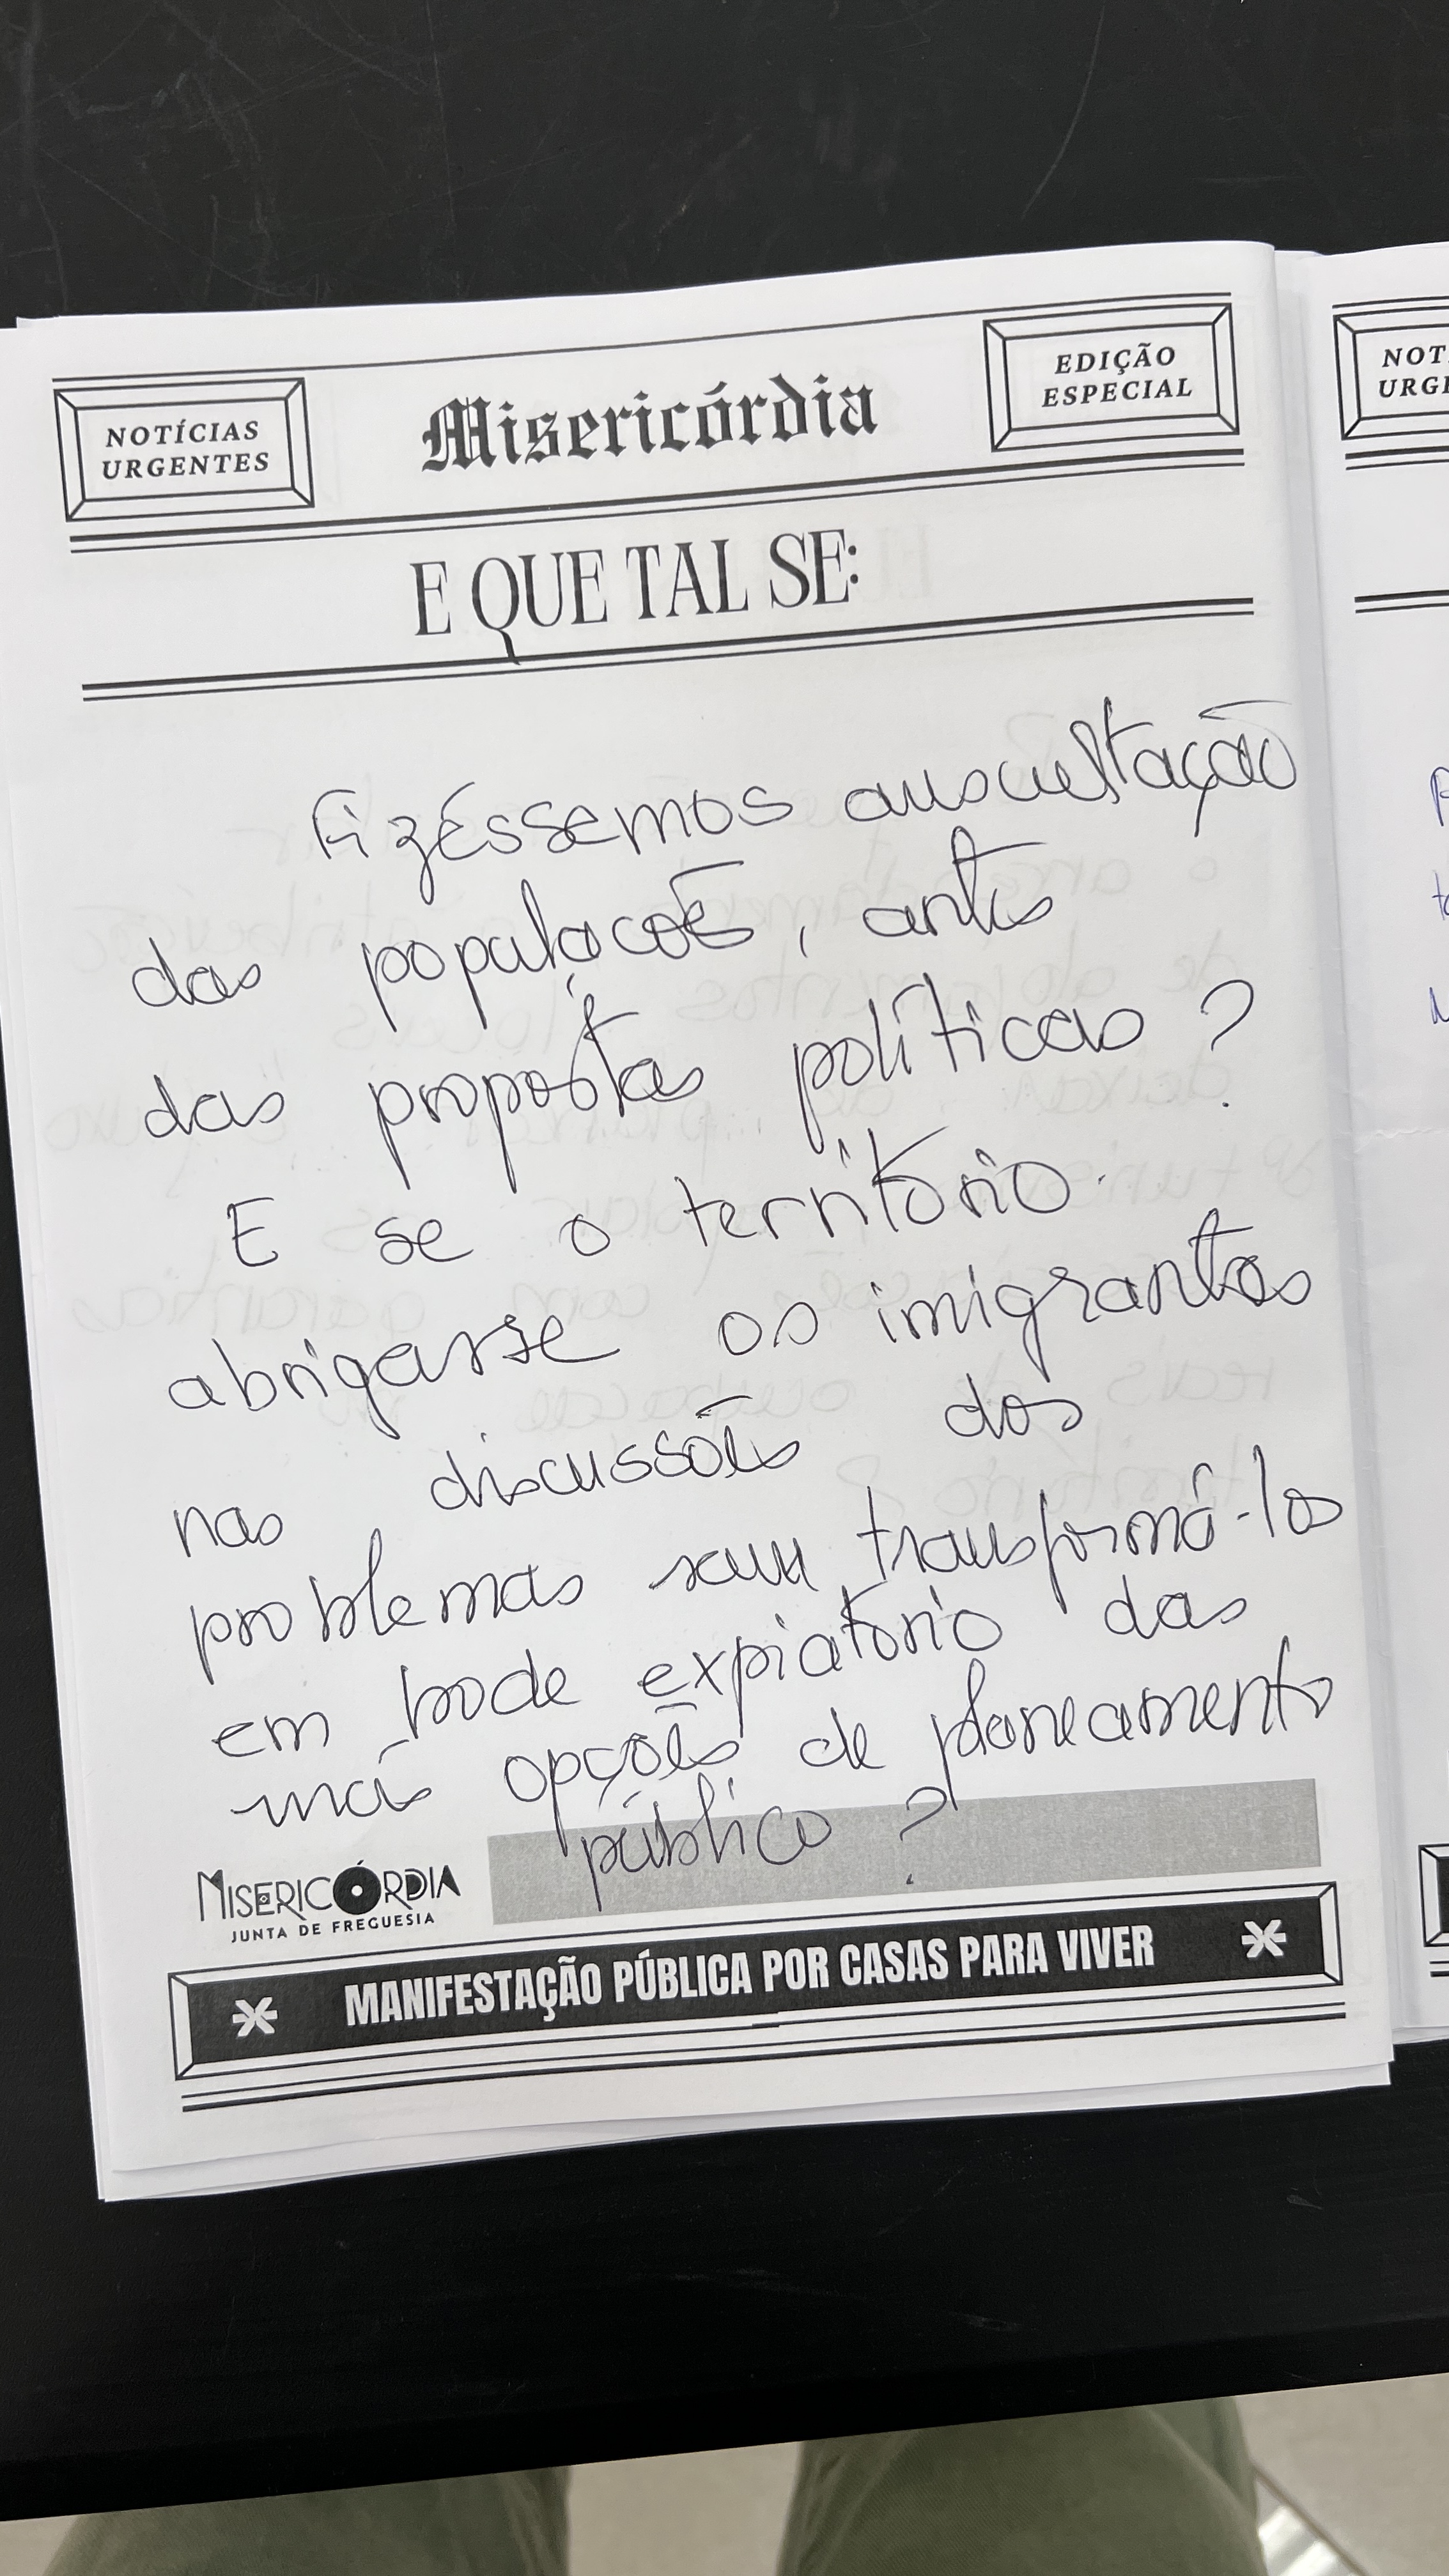 NOTÍCIAS
URGENTES
Misericórdia
EDIÇÃO
ESPECIAL
E QUE TAL SE:
Fizéssemos auscultação
das populações, antes
das propostas políticas?
E se o território
abrigasse os imigrantes
nas discussões dos
problemas sem transformá-los
em bode expiatório das
más opções de planeamento
público?
MISERICÓRDIA
JUNTA DE FREGUESIA
MANIFESTAÇÃO PÚBLICA POR CASAS PARA VIVER
NOT
URG